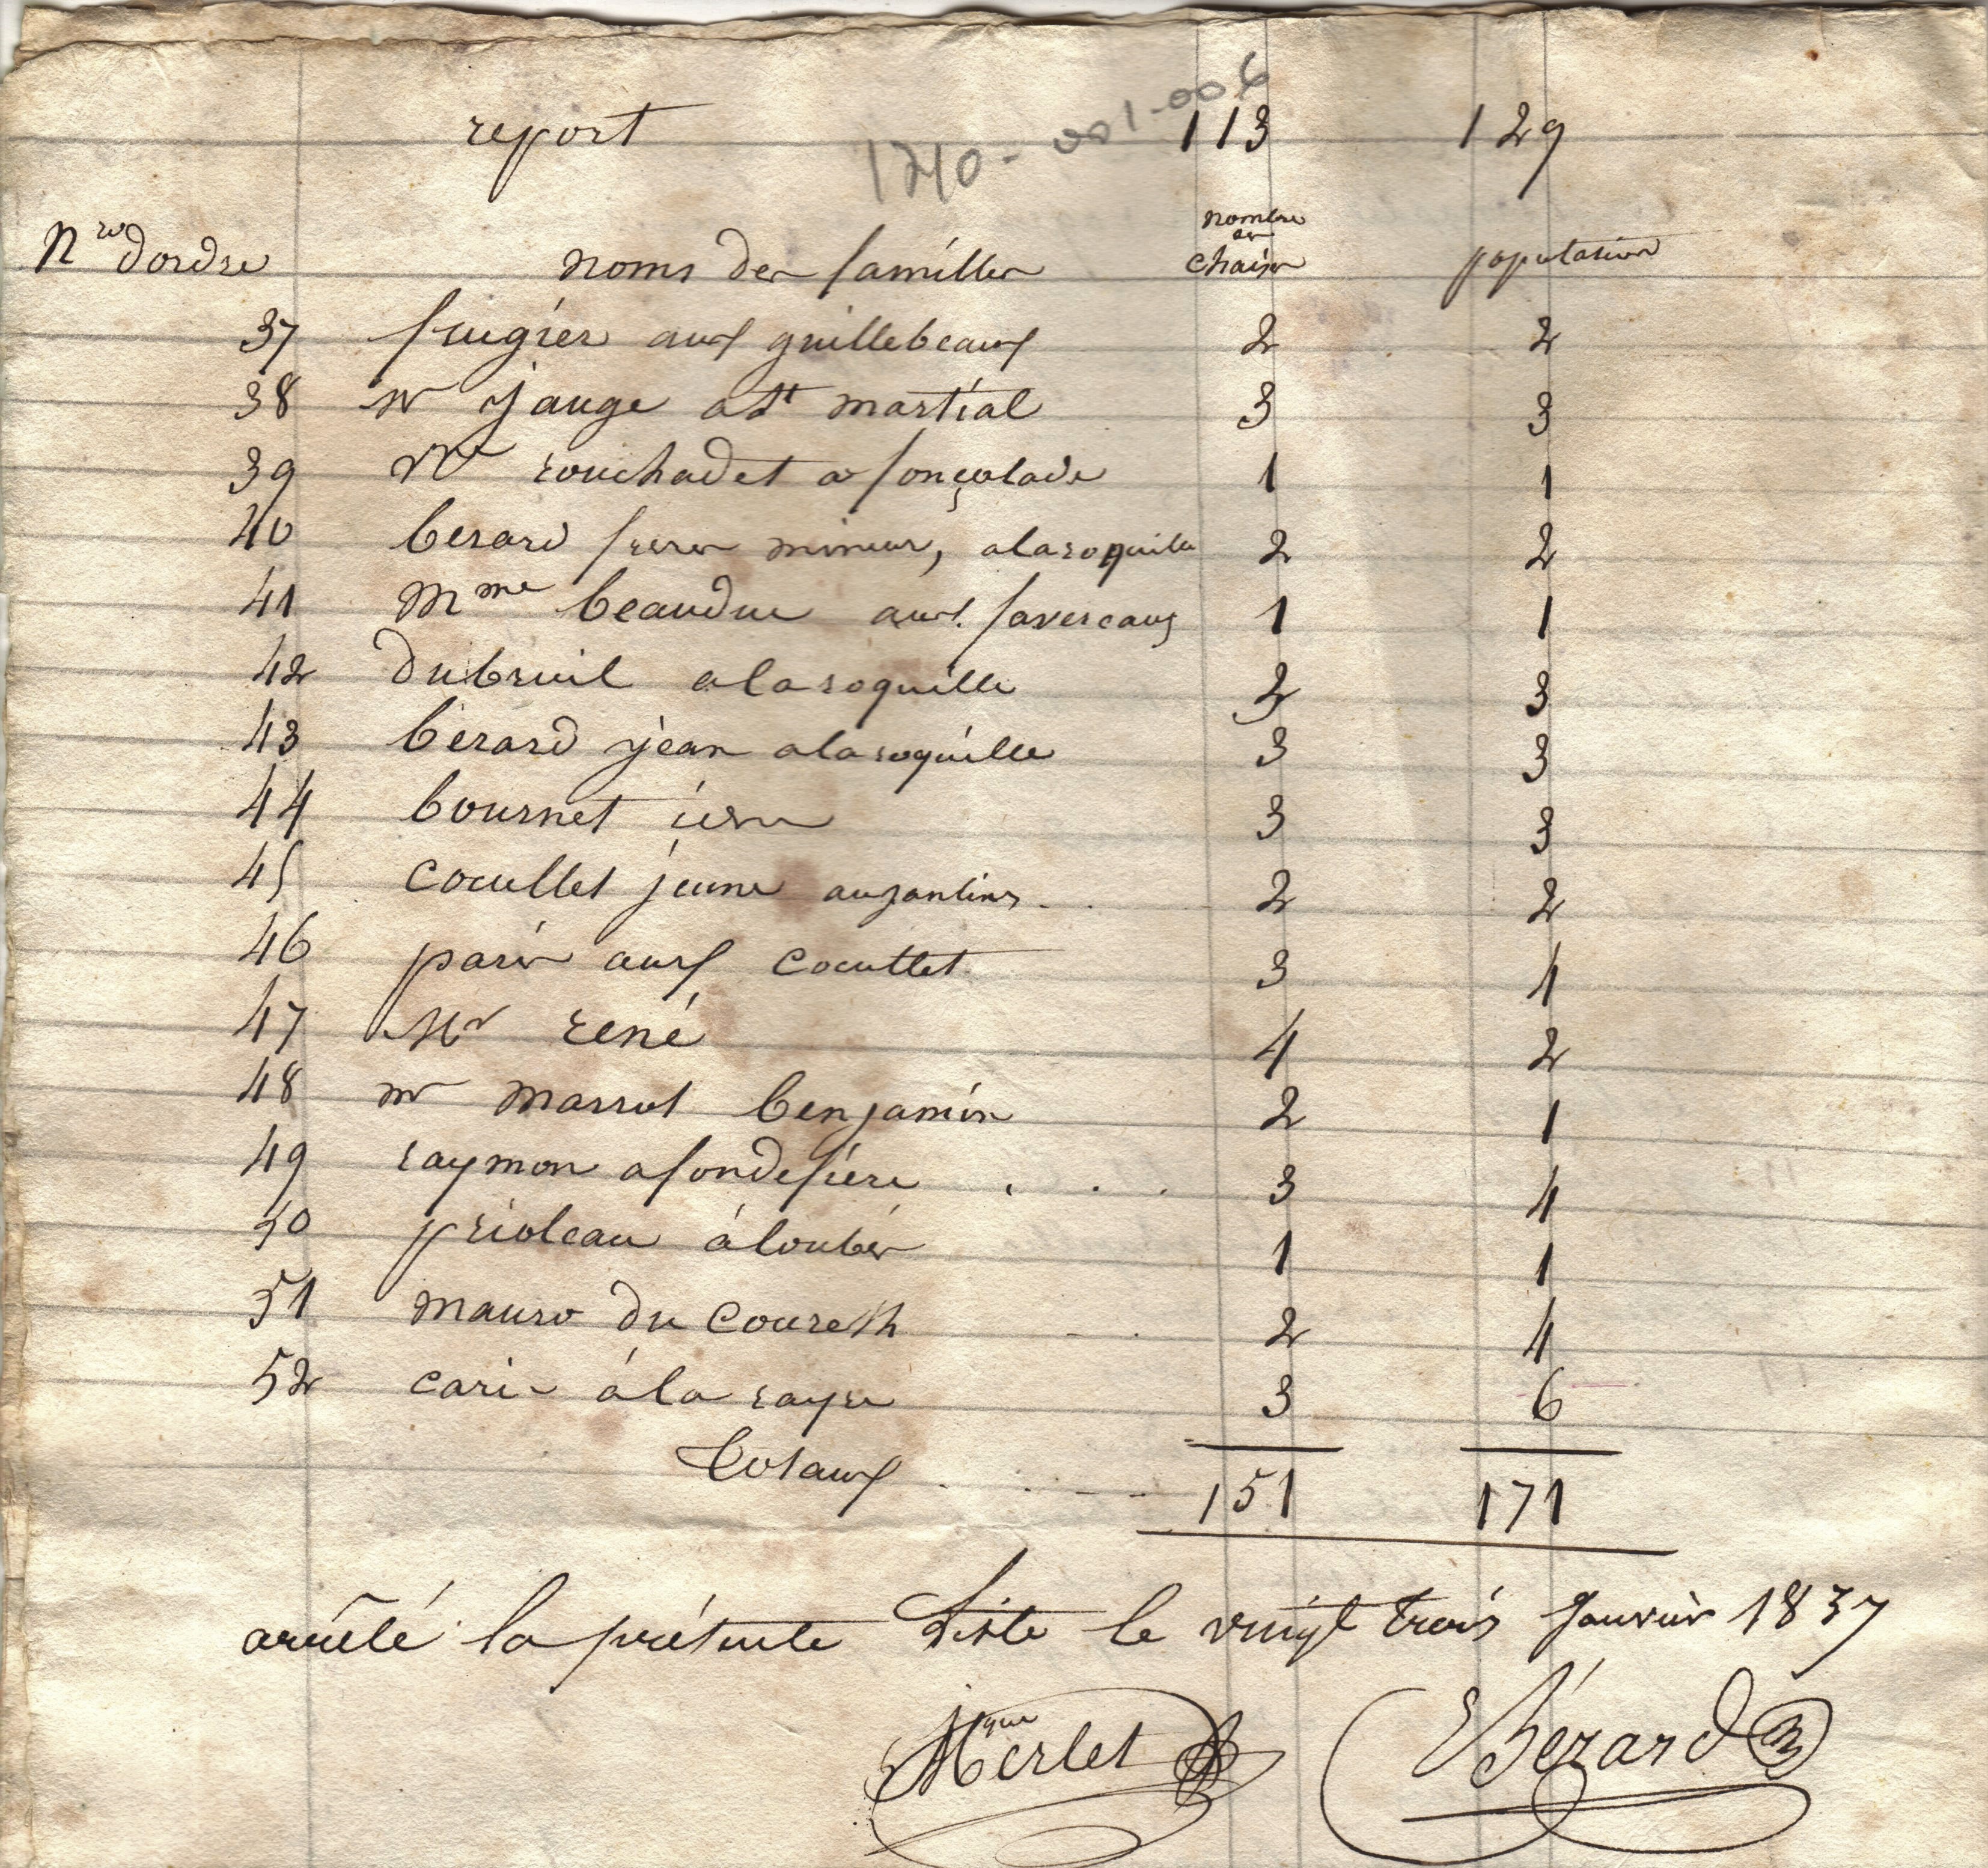 1210-001-006
report 113 129
Nro d'ordre noms des familles nombre de chaises population
37 frugier aux guillebeaux 2 2
38 Mr jauge a St martial 3 3
39 Vve rouchadet a fonçalade 1 1
40 berard freres mineurs, alaroquille 2 2
41 Mme beaudue aux favereaux 1 1
42 dubreuil alaroquille 2 3
43 bérard jean alaroquille 3 3
44 bournet 3 3
45 cocullet jeune augantins 2 2
46 paris aux cocullet 3 4
47 Mr rené 4 2
48 mr marrot benjamin 2 1
49 raymon afondefiere 3 4
50 prioleau à loubes 1 1
51 mauro du coureth 2 4
52 caris à la raye 3 6
totaux 151 171
arrêté la présente Liste le vingt trois Janvier 1837
Merlet Bérard